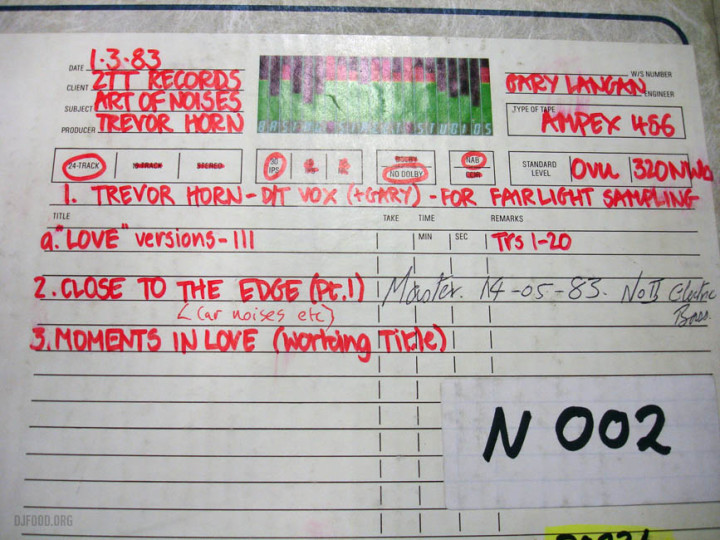 DATE 1·3·83
W/S NUMBER
CLIENT ZTT RECORDS
GARY LANGAN ENGINEER
SUBJECT ART OF NOISES
TYPE OF TAPE
PRODUCER TREVOR HORN
AMPEX 456
BASING STREET STUDIOS
24-TRACK 16-TRACK STEREO 30 IPS NO DOLBY NAB CCIR STANDARD LEVEL OVU 320NWb
1. TREVOR HORN - DIT VOX (+GARY) - FOR FAIRLIGHT SAMPLING
TITLE TAKE TIME REMARKS
a. "LOVE" versions - 111 MIN SEC Trs 1-20
2. CLOSE TO THE EDGE (Pt.1) Master. 14-05-83. No II Electric Bass.
(Car noises etc)
3. MOMENTS IN LOVE (working Title)
N 002
DJFOOD.ORG